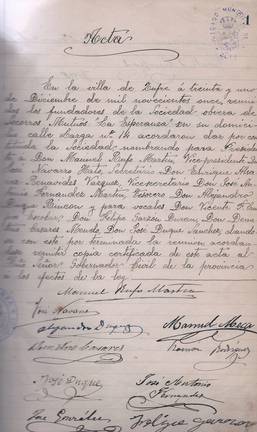 1
Acta
En la villa de Zufre á treinta y uno
de Diciembre de mil novecientos once, reuni
dos los fundadores de la Sociedad obrera de
Socorros Mutuos "La Esperanza" en su domicilio
calle Larga nº 14 acordaron dar por cons
tituida la Sociedad, nombrando para Presiden
te a Don Manuel Rufo Martin, Vicepresidente Don
José Navarro Hato, Secretario Don Enrique
Benavides Vazquez, Vicesecretario Don José An
tonio Fernandez Martin, Tesorero Don Alejandro
Duque Rincon y para vocales Don Vicente
Don Felipe Garzon Duran, Don Deme
trio Casares Don José Duque Sanchez, dando
se con esto por terminada la reunion, acordan
dose remitir copia certificada de este acta al
Señor Gobernador Civil de la provincia
a los efectos de la ley.
Manuel Rufo Martin
José Navarro
Alejandro Duque
Manuel Meca
Demetrio Casares
Ramon Rodriguez
José Duque
José Antonio
Fernandez
José González
Felipe Garzon